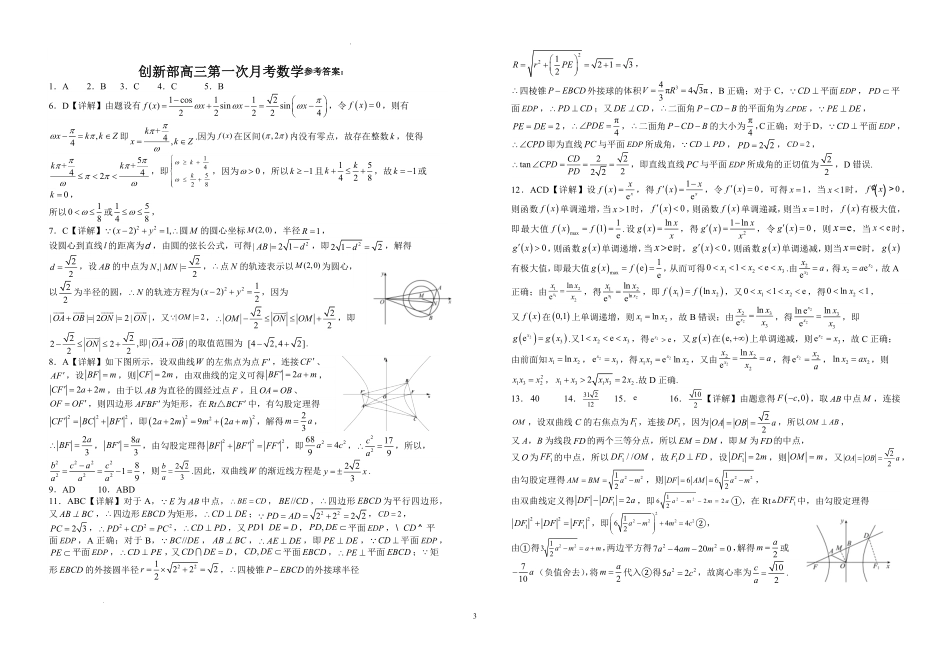 创新部高三第一次月考数学参考答案:
1. A 2. B 3. C 4. C 5. B
6. D【详解】由题设有 f(x)=(1-cosωx)/2+(1/2)sinωx-1/2=(√2/2)sin(ωx-π/4),令 f(x)=0,则有
ωx-π/4=kπ,k∈Z 即 x=(kπ+π/4)/ω,k∈Z.因为 f(x) 在区间(π,2π) 内没有零点,故存在整数 k,使得
(kπ+π/4)/ω≤π<2π≤(kπ+5π/4)/ω,即{ω≥k+1/4, ω≤k/2+5/8,因为 ω>0,所以 k≥-1 且 k+1/4≤k/2+5/8,故 k=-1 或
k=0,
所以 0<ω≤1/8 或 1/4≤ω≤5/8,
7. C【详解】∵(x-2)²+y²=1,∴圆 M 的圆心坐标 M(2,0),半径 R=1,
设圆心到直线 l 的距离为 d,由圆的弦长公式,可得|AB|=2√(1-d²),即 2√(1-d²)=√2,解得
d=√2/2,设 AB 的中点为 N,|MN|=√2/2,∴点 N 的轨迹表示以 M(2,0) 为圆心,
以 √2/2 为半径的圆,∴N 的轨迹方程为 (x-2)²+y²=1/2,因为
|OA+OB|=|2ON|=2|ON|,又∵|OM|=2,∴|OM|-√2/2≤|ON|≤|OM|+√2/2,即
2-√2/2≤|ON|≤2+√2/2,即|OA+OB|的取值范围为 [4-√2,4+√2].
8. A【详解】如下图所示,设双曲线 W 的左焦点为点 F′,连接 CF′、
AF′,设|BF|=m,则|CF|=2m,由双曲线的定义可得|BF′|=2a+m,
|CF′|=2a+2m,由于以 AB 为直径的圆经过点 F,且|OA|=|OB|、
|OF|=|OF′|,则四边形 AFBF′ 为矩形,在 Rt△BCF′ 中,有勾股定理得
|CF′|²=|BC|²+|BF′|²,即(2a+2m)²=9m²+(2a+m)²,解得 m=2a/3,
∴|BF|=2a/3,|BF′|=8a/3,由勾股定理得|BF|²+|BF′|²=|FF′|²,即 68/9 a²=4c²,∴c²/a²=17/9,所以,
b²/a²=(c²-a²)/a²=c²/a²-1=8/9,则 b/a=2√2/3.因此,双曲线 W 的渐近线方程是 y=±(2√2/3)x.
9. AD 10. ABD
11. ABC【详解】对于 A,∵E 为 AB 中点,∴BE=CD,BE//CD,∴四边形 EBCD 为平行四边形,
又 AB⊥BC,∴四边形 EBCD 为矩形,∴CD⊥DE;∵PD=AD=√(2²+2²)=2√2,CD=2,
PC=2√3,∴PD²+CD²=PC²,∴CD⊥PD,又 PD∩DE=D,PD,DE⊂平面 EDP,∴CD⊥平
面 EDP,A 正确;对于 B,∵BC//DE,AB⊥BC,∴AE⊥DE,即 PE⊥DE,∵CD⊥平面 EDP,
PE⊂平面 EDP,∴CD⊥PE,又 CD∩DE=D,CD,DE⊂平面 EBCD,∴PE⊥平面 EBCD;∵矩
形 EBCD 的外接圆半径 r=1/2×√(2²+2²)=√2,∴四棱锥 P-EBCD 的外接球半径
R=√(r²+(1/2 PE)²)=√(2+1)=√3,
∴四棱锥 P-EBCD 外接球的体积 V=4/3 πR³=4√3π,B 正确;对于 C,∵CD⊥平面 EDP,PD⊂平
面 EDP,∴PD⊥CD;又 DE⊥CD,∴二面角 P-CD-B 的平面角为∠PDE,∵PE⊥DE,
PE=DE=2,∴∠PDE=π/4,∴二面角 P-CD-B 的大小为 π/4,C正确;对于D,∵CD⊥平面 EDP,
∴∠CPD 即为直线 PC 与平面 EDP 所成角,∵CD⊥PD,PD=2√2,CD=2,
∴tan∠CPD=CD/PD=2/(2√2)=√2/2,即直线直线 PC 与平面 EDP 所成角的正切值为 √2/2,D 错误.
12. ACD【详解】设 f(x)=x/eˣ,得 f′(x)=(1-x)/eˣ,令 f′(x)=0,可得 x=1,当 x<1 时,f′(x)>0,
则函数 f(x) 单调递增,当 x>1 时,f′(x)<0,则函数 f(x) 单调递减,则当 x=1 时,f(x) 有极大值,
即最大值 f(x)max=f(1)=1/e.设 g(x)=ln x/x,得 g′(x)=(1-ln x)/x²,令 g′(x)=0,则 x=e,当 x<e 时,
g′(x)>0,则函数 g(x) 单调递增,当 x>e 时,g′(x)<0,则函数 g(x) 单调递减,则当 x=e 时,g(x)
有极大值,即最大值 g(x)max=f(e)=1/e,从而可得 0<x₁<1<x₂<e<x₃.由 x₂/e^x₂=a,得 x₂=ae^x₂,故 A
正确;由 x₁/e^x₁=ln x₂/x₂,得 x₁/e^x₁=ln x₂/e^(ln x₂),即 f(x₁)=f(ln x₂),又 0<x₁<1<x₂<e,得 0<ln x₂<1,
又 f(x) 在(0,1)上单调递增,则 x₁=ln x₂,故 B 错误;由 x₂/e^x₂=ln x₃/x₃,得 ln e^x₂/e^x₂=ln x₃/x₃,即
g(e^x₂)=g(x₃).又 1<x₂<e<x₃,得 e^x₂>e,又 g(x) 在(e,+∞)上单调递减,则 e^x₂=x₃,故 C 正确;
由前面知 x₁=ln x₂,e^x₂=x₃,得 x₁x₃=e^x₂ ln x₂,又由 x₂/e^x₂=ln x₂/x₂=a,得 e^x₂=x₂/a,ln x₂=ax₂,则
x₁x₃=x₂²,x₁+x₃>2√(x₁x₃)=2x₂.故 D 正确.
13. 40 14. 31√2/12 15. e 16. √10/2【详解】由题意得 F(-c,0),取 AB 中点 M,连接
OM,设双曲线 C 的右焦点为 F₁,连接 DF₁,因为|OA|=|OB|=(√2/2)a,所以 OM⊥AB,
又 A,B 为线段 FD 的两个三等分点,所以 |FM|=|DM|,即 M 为 FD 的中点,
又 O 为 FF₁ 的中点,所以 DF₁//OM,故 F₁D⊥FD,设|DF₁|=2m,则|OM|=m,又|OA|=|OB|=(√2/2)a,
由勾股定理得|AM|=|BM|=√(1/2 a²-m²),则|DF|=6|AM|=6√(1/2 a²-m²),
由双曲线定义得|DF|-|DF₁|=2a,即 6√(1/2 a²-m²)-2m=2a①,在 Rt△DFF₁ 中,由勾股定理得
|DF₁|²+|DF|²=|FF₁|²,即(6√(1/2 a²-m²))²+4m²=4c²②,
由①得 3√(1/2 a²-m²)=a+m,两边平方得 7a²-4am-20m²=0,解得 m=a/2 或
-7/10 a(负值舍去),将 m=a/2 代入②得 5a²=2c²,故离心率为 c/a=√10/2.
3